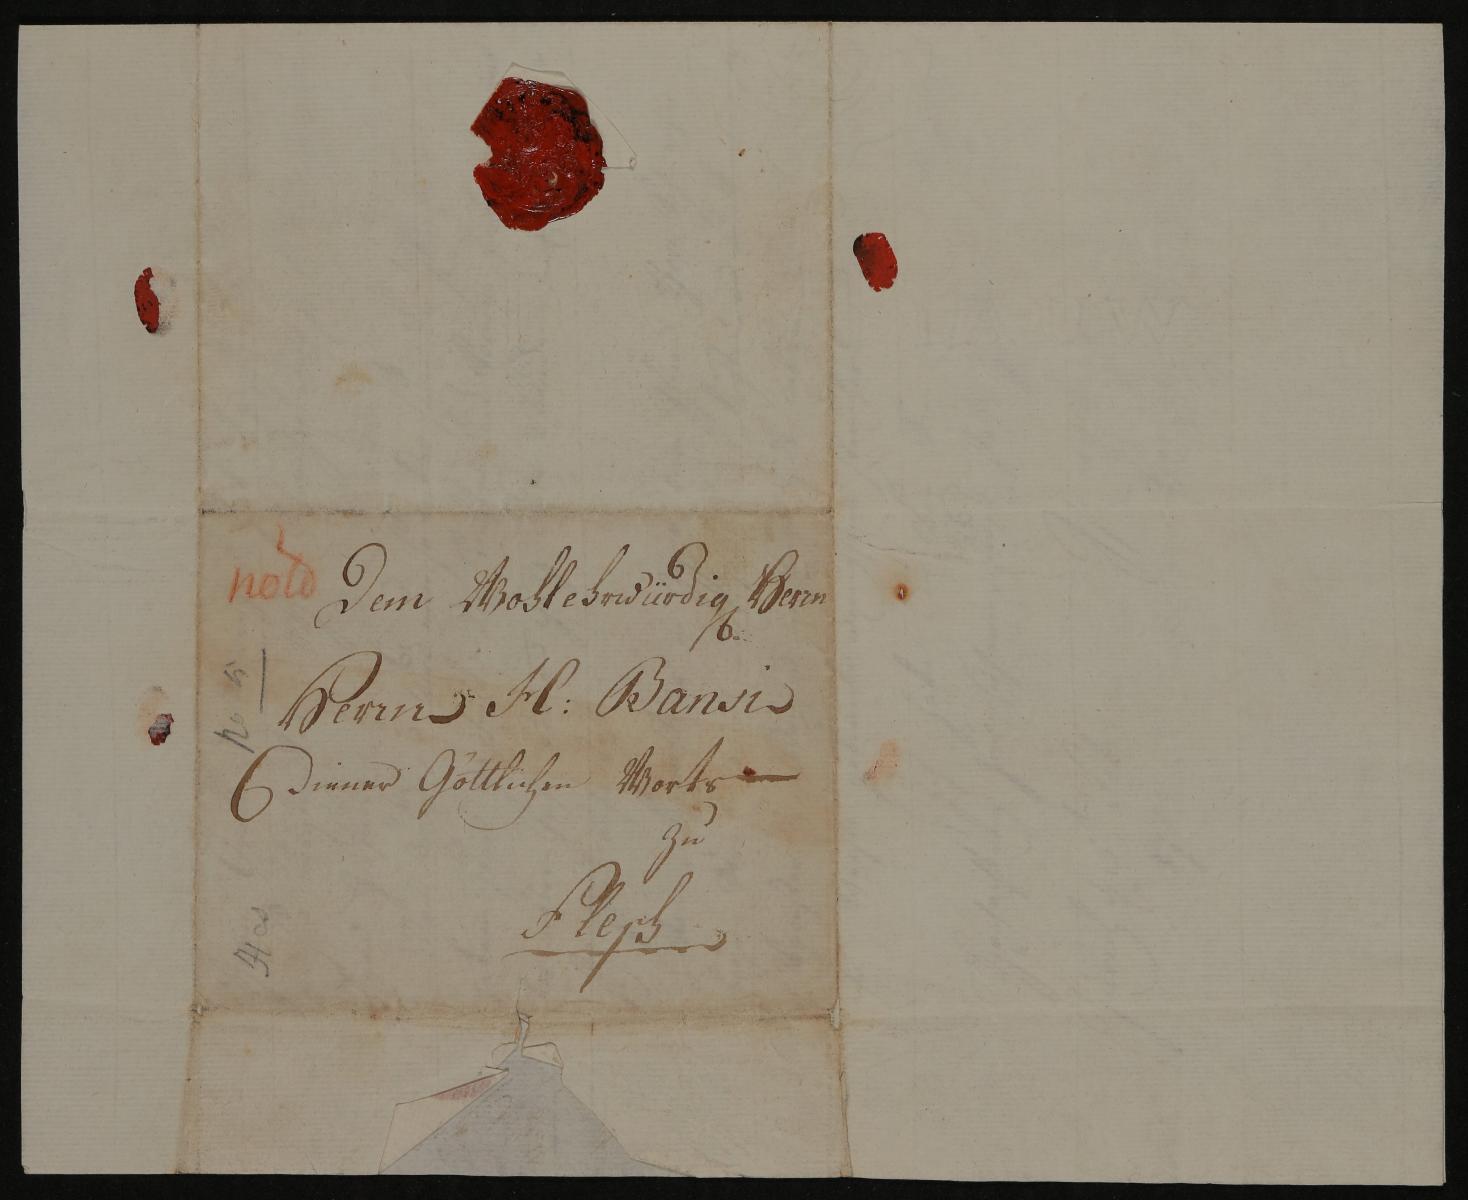 Dem Wohlehrwürdig Herrn
Herrn H: Bansi
Diener Göttlichen Worts
zu
Flesch